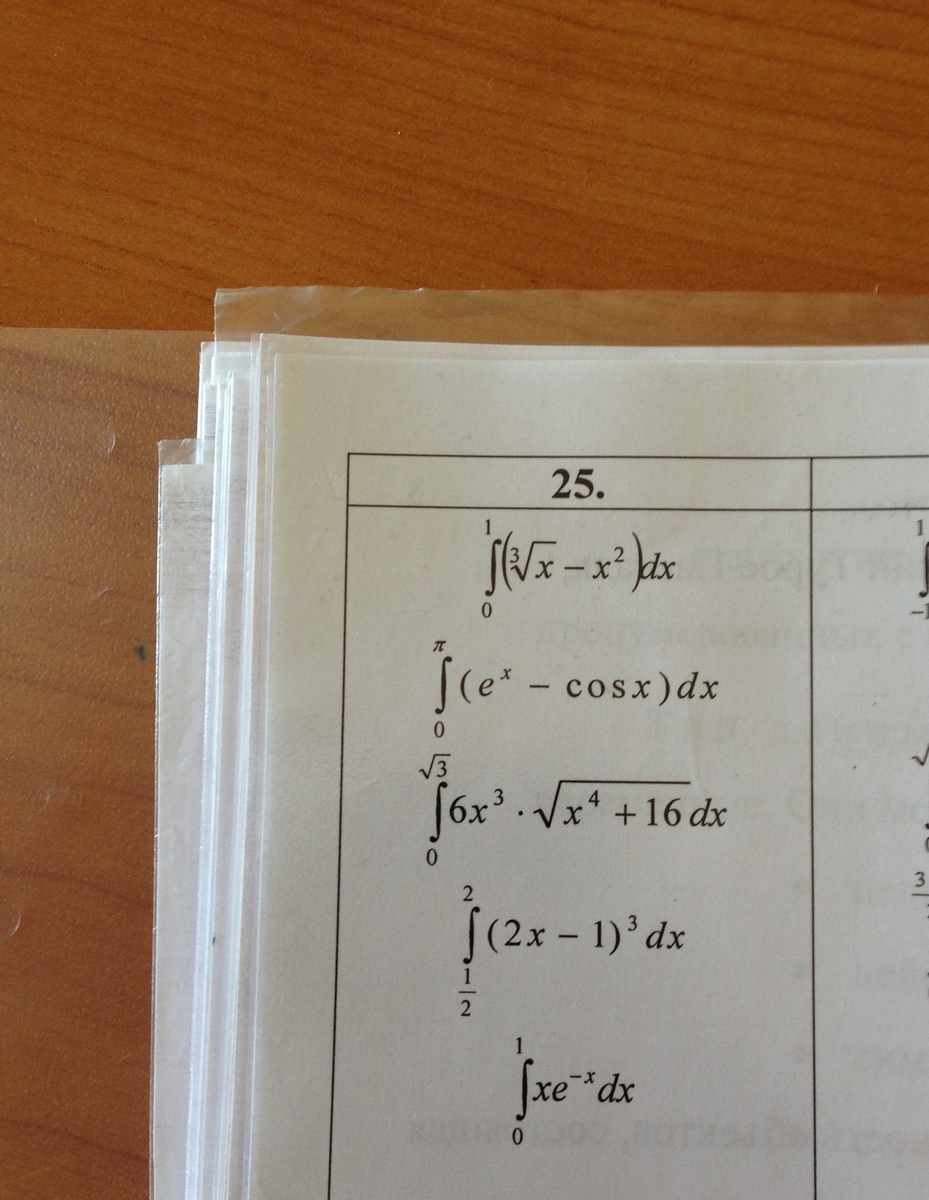 25.
$\int_{0}^{1}\left(\sqrt[3]{x} - x^{2}\right)dx$
$\int_{0}^{\pi}(e^{x} - \cos x)dx$
$\int_{0}^{\sqrt{3}} 6x^{3} \cdot \sqrt{x^{4} + 16}\, dx$
$\int_{\frac{1}{2}}^{2}(2x - 1)^{3} dx$
$\int_{0}^{1} xe^{-x} dx$